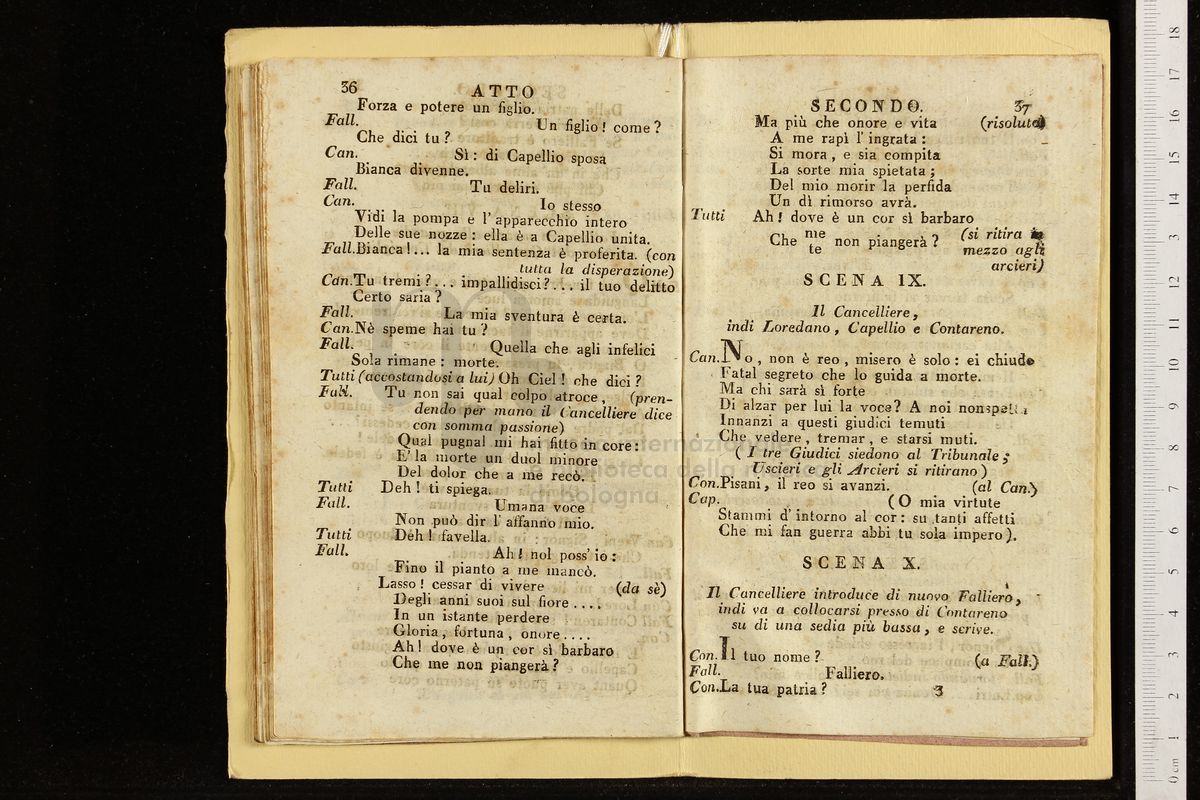 36 ATTO
Forza e potere un figlio.
Fall. Un figlio! come?
Che dici tu?
Can. Sì: di Capellio sposa
Bianca divenne.
Fall. Tu deliri.
Can. Io stesso
Vidi la pompa e l'apparecchio intero
Delle sue nozze: ella è a Capellio unita.
Fall. Bianca!... la mia sentenza è proferita. (con
tutta la disperazione)
Can. Tu tremi?... impallidisci?... il tuo delitto
Certo saria?
Fall. La mia sventura è certa.
Can. Nè speme hai tu?
Fall. Quella che agli infelici
Sola rimane: morte.
Tutti (accostandosi a lui) Oh Ciel! che dici?
Fall. Tu non sai qual colpo atroce, (pren-
dendo per mano il Cancelliere dice
con somma passione)
Qual pugnal mi hai fitto in core:
E' la morte un duol minore
Del dolor che a me recò.
Tutti Deh! ti spiega.
Fall. Umana voce
Non può dir l'affanno mio.
Tutti Deh! favella.
Fall. Ah! nol poss'io:
Fino il pianto a me mancò.
Lasso! cessar di vivere (da sè)
Degli anni suoi sul fiore....
In un istante perdere
Gloria, fortuna, onore....
Ah! dove è un cor sì barbaro
Che me non piangerà?
SECONDO. 37
Ma più che onore e vita (risoluto)
A me rapì l'ingrata:
Si mora, e sia compita
La sorte mia spietata;
Del mio morir la perfida
Un dì rimorso avrà.
Tutti Ah! dove è un cor sì barbaro
Che me te non piangerà? (si ritira in
mezzo agli
arcieri)
SCENA IX.
Il Cancelliere,
indi Loredano, Capellio e Contareno.
Can. No, non è reo, misero è solo: ei chiude
Fatal segreto che lo guida a morte.
Ma chi sarà sì forte
Di alzar per lui la voce? A noi non spetta
Innanzi a questi giudici temuti
Che vedere, tremar, e starsi muti.
(I tre Giudici siedono al Tribunale;
Uscieri e gli Arcieri si ritirano)
Con. Pisani, il reo si avanzi. (al Can.)
Cap. (O mia virtute
Stammi d'intorno al cor: su tanti affetti
Che mi fan guerra abbi tu sola impero).
SCENA X.
Il Cancelliere introduce di nuovo Falliero,
indi va a collocarsi presso di Contareno
su di una sedia più bassa, e scrive.
Con. Il tuo nome? (a Fall.)
Fall. Falliero.
Con. La tua patria? 3